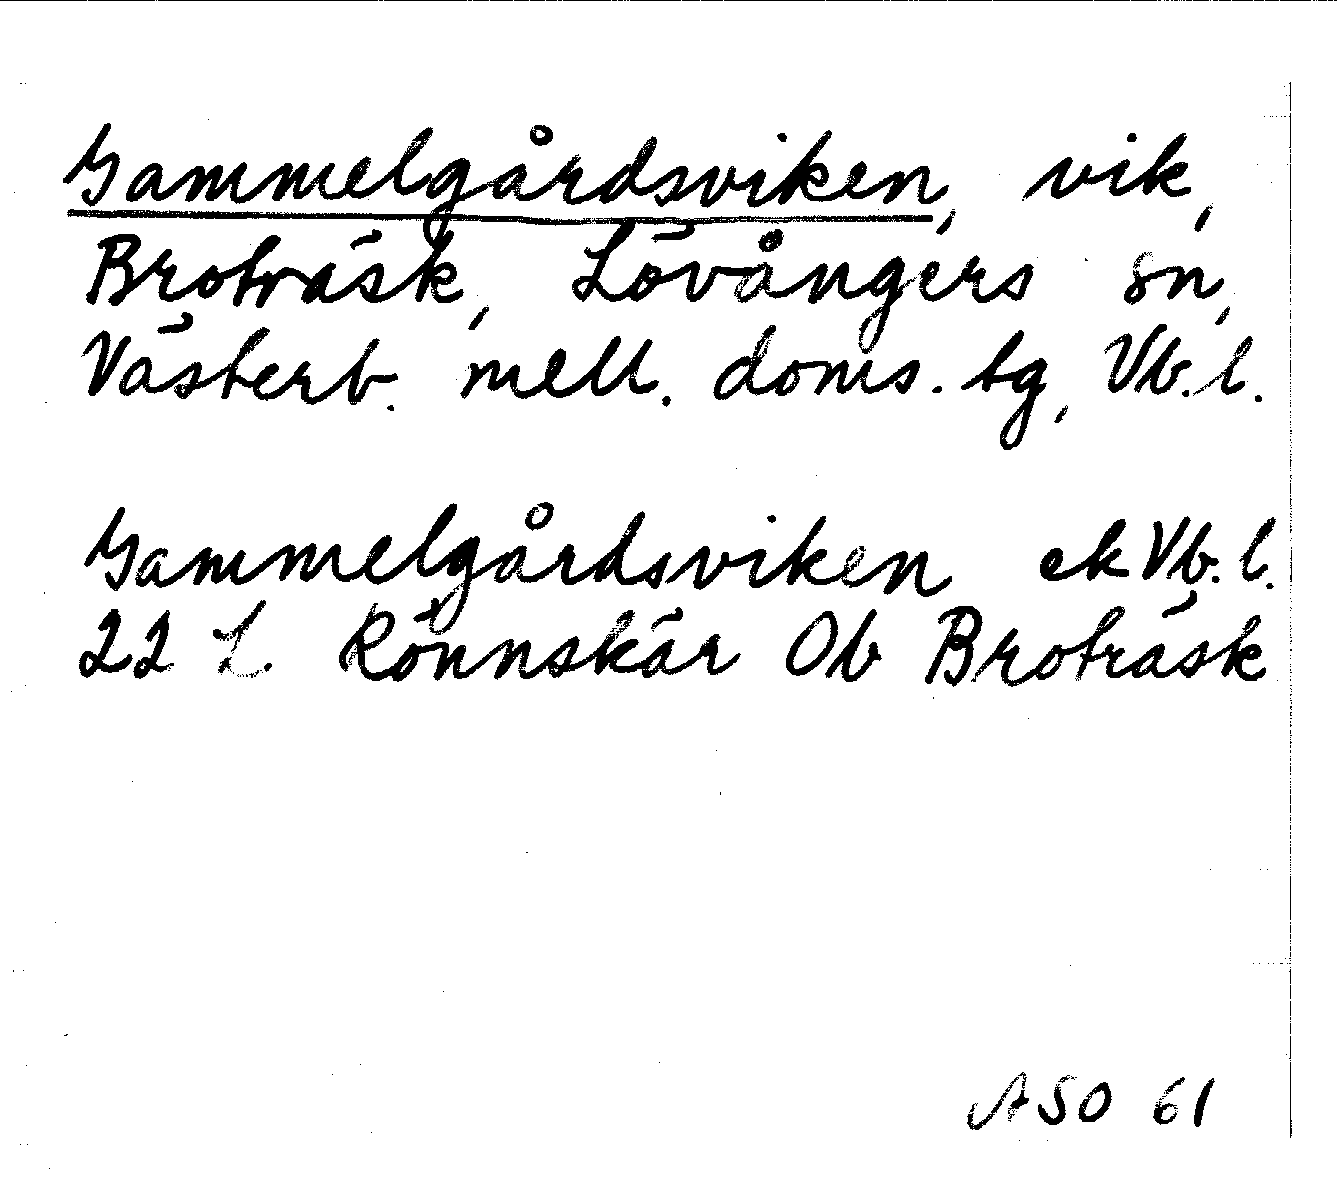 Gammelgårdsviken, vik,
Broträsk, Lövångers sn,
Västerb. mell. doms. tg, Vb. l.
Gammelgårdsviken ek Vb. l.
22 L. Rönnskär Ob Broträsk
ASO 61